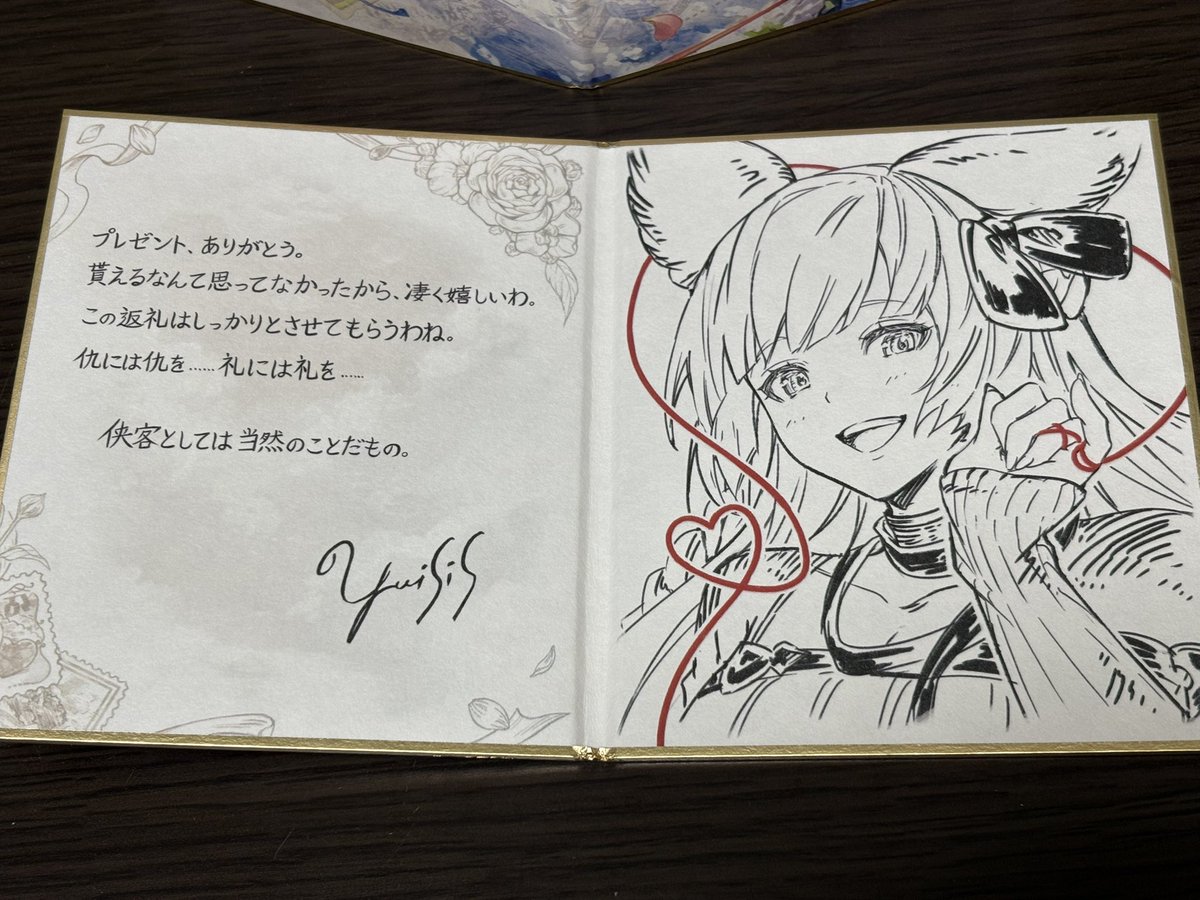 プレゼント、ありがとう。
貰えるなんて思ってなかったから、凄く嬉しいわ。
この返礼はしっかりとさせてもらうわね。
仇には仇を……礼には礼を……
侠客としては当然のことだもの。
Yuisis